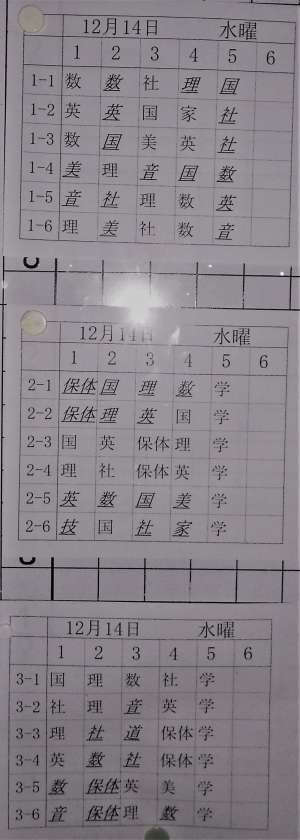 12月14日 水曜
1 2 3 4 5 6
1-1 数 数 社 理 国
1-2 英 英 国 家 社
1-3 数 国 美 英 社
1-4 美 理 音 国 数
1-5 音 社 理 数 英
1-6 理 美 社 数 音
12月14日 水曜
1 2 3 4 5 6
2-1 保体 国 理 数 学
2-2 保体 理 英 国 学
2-3 国 英 保体 理 学
2-4 理 社 保体 英 学
2-5 英 数 国 美 学
2-6 技 国 社 家 学
12月14日 水曜
1 2 3 4 5 6
3-1 国 理 数 社 学
3-2 社 理 音 英 学
3-3 理 社 道 保体 学
3-4 英 数 社 保体 学
3-5 数 保体 英 美 学
3-6 音 保体 理 数 学